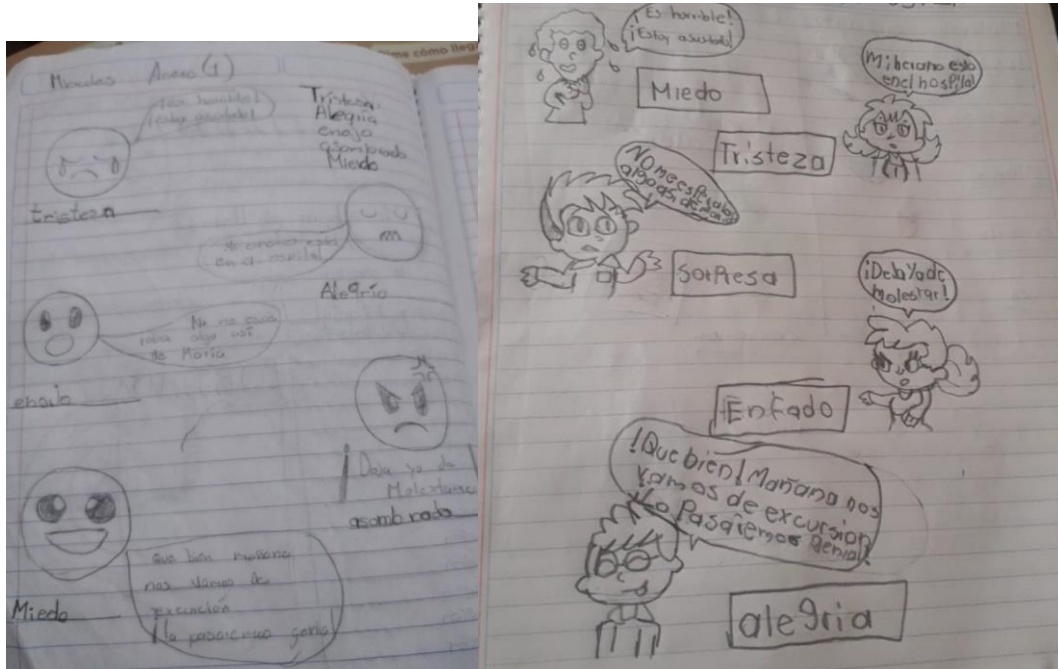 Anexo (1)
¡es horrible!
¡estoy asustado!
Tristeza
Alegria
enojo
asombrado
Miedo
tristeza
en el
Alegria
No me espe
raba algo así
de María
enojo
¡Deja ya de
Molestarme
asombrado
Que bien mañana
nos vamos de
excurción
lo pasaremos genial
Miedo
ime cómo lleg
¡Es horrible!
¡Estoy asustado!
Miedo
Mi hermano esta
en el hospital
Tristeza
No me esperaba
algo asi de
Sorpresa
¡Deja Ya de
Molestar!
Enfado
!Que bien! Mañana nos
Vamos de excursion
Lo Pasaremos genial!
alegria